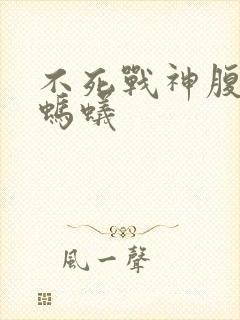 不死戰神腹
螞蟻
風一聲